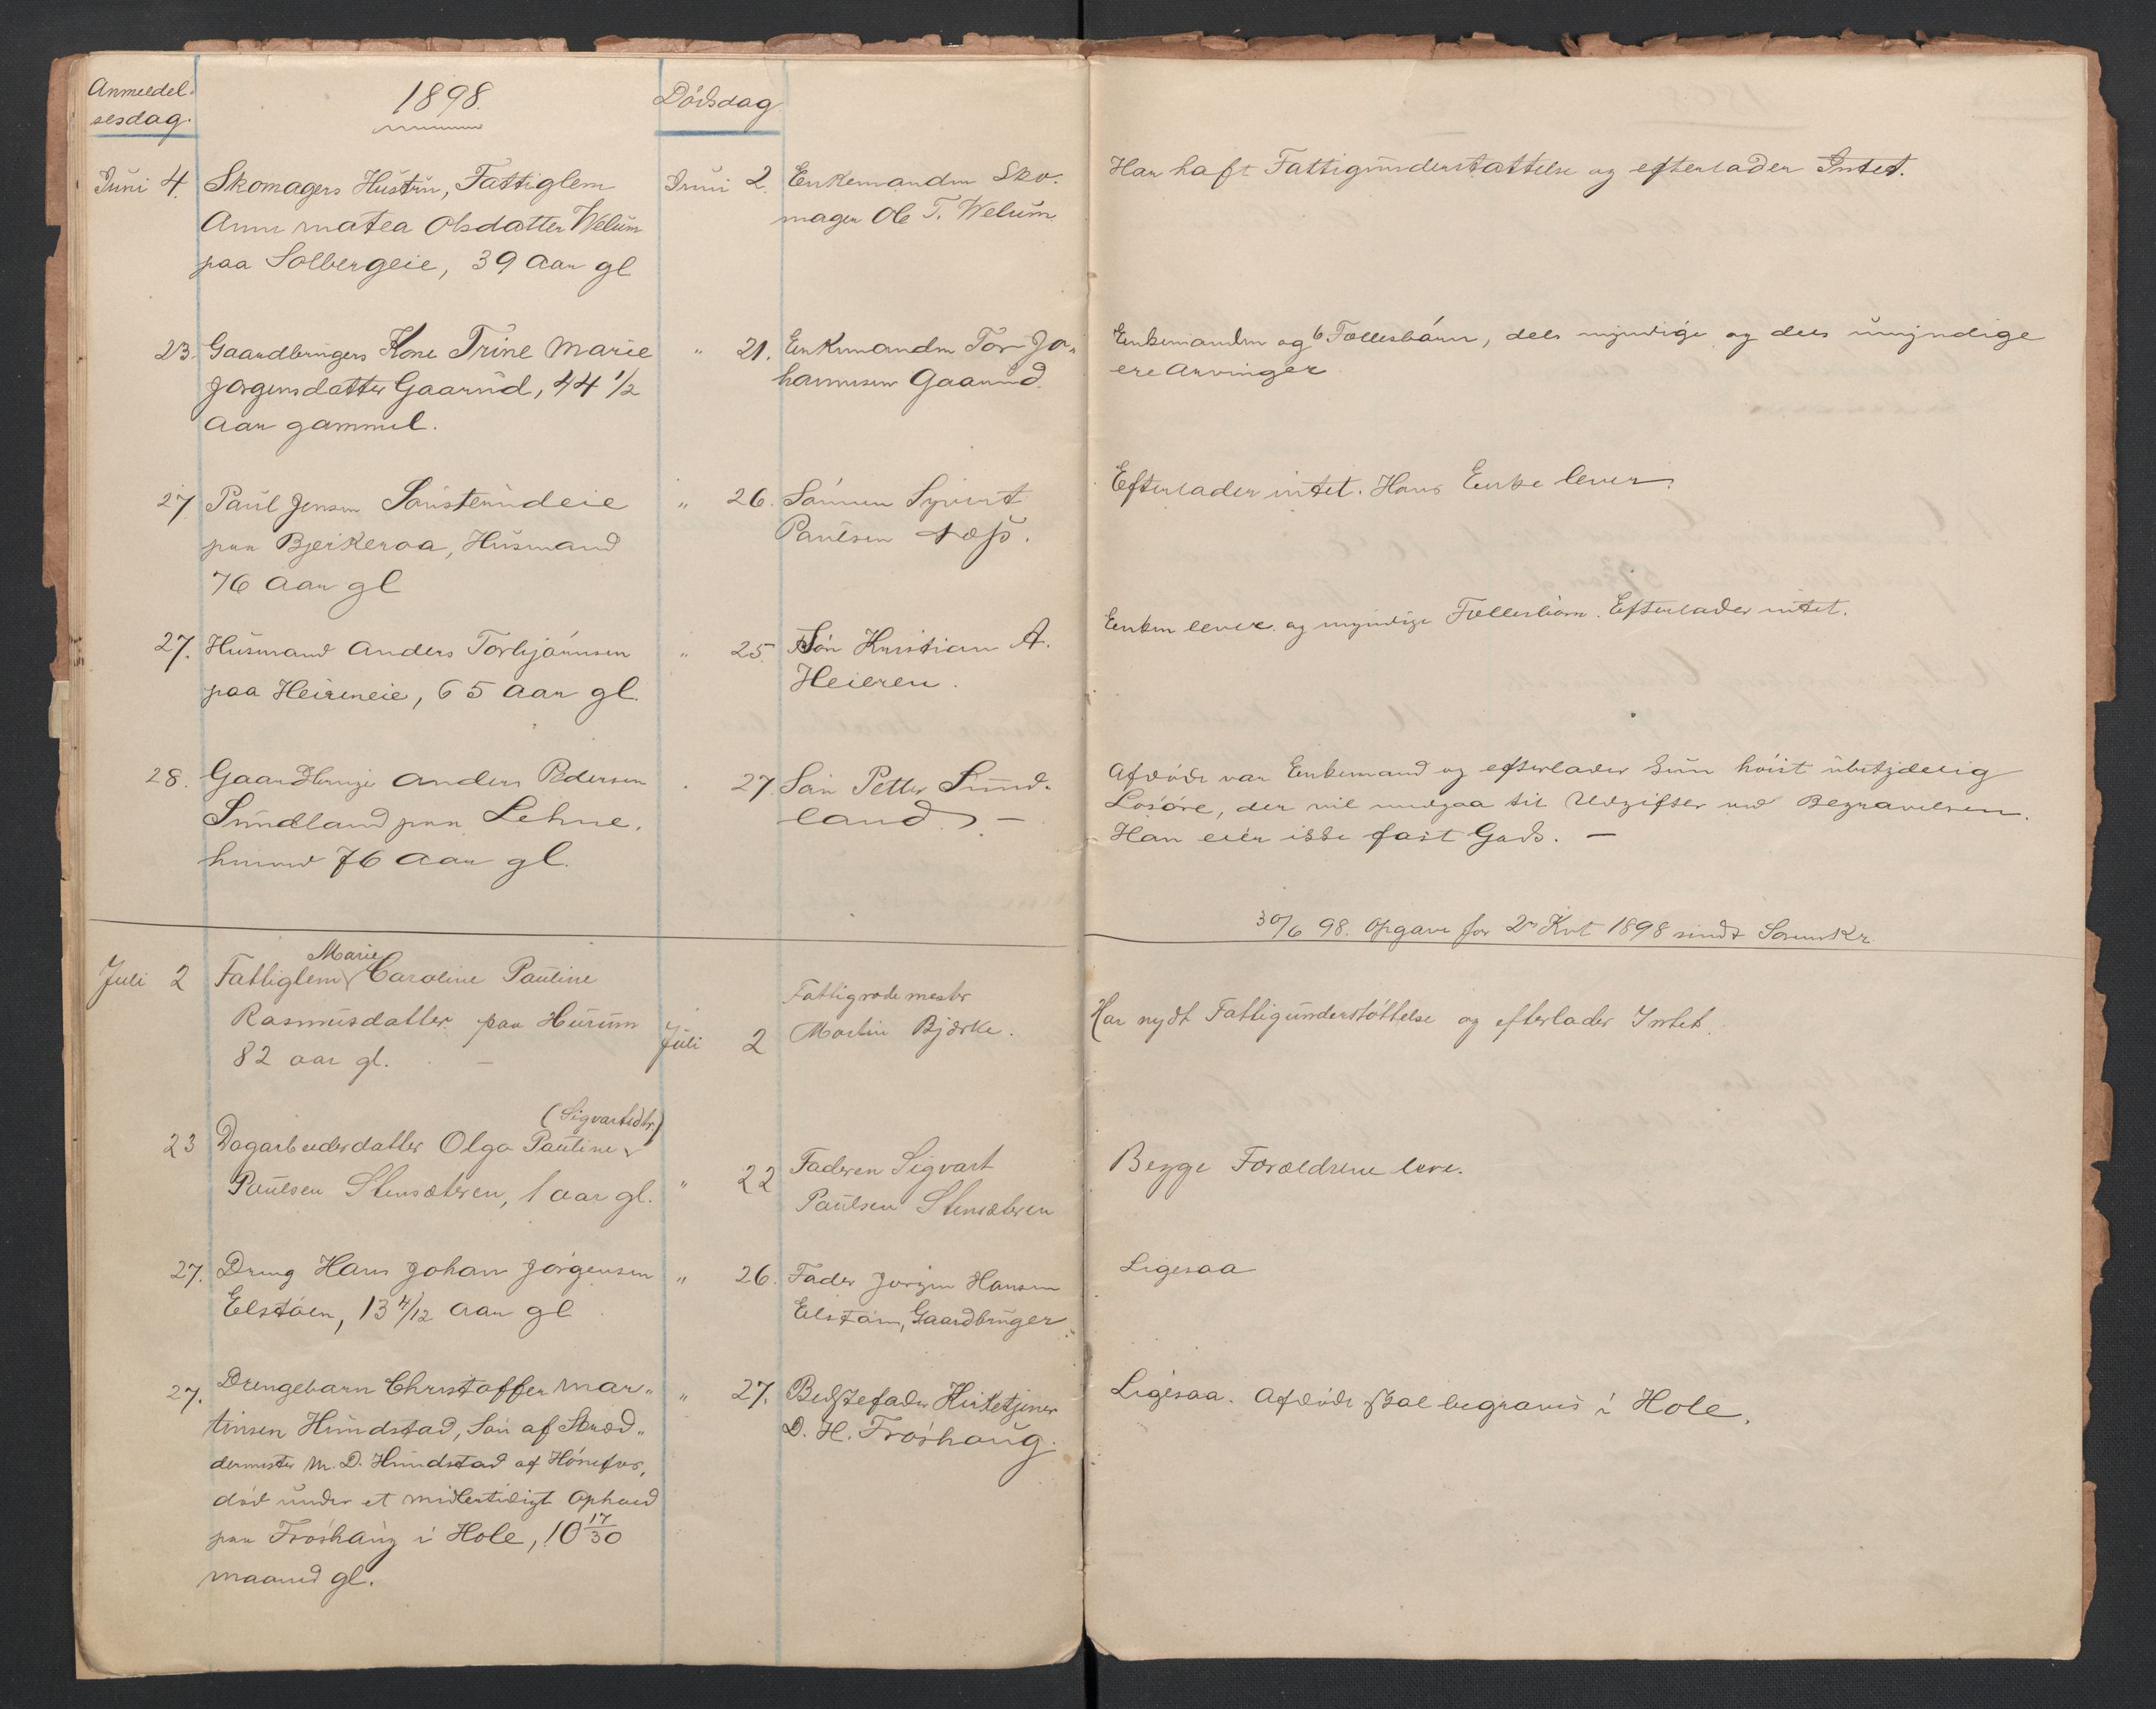 Anmeldel-
sesdag.
1898.
Dödsdag
Juni 4. Skomagers Hustru, Fattiglem
Anne Matea Olsdatter Welum
paa Solbergeie, 39 Aar gl
Juni 2. Enkemanden Sko-
mager Ole T. Welum
Har haft Fattigunderstøttelse og efterlader Intet.
23. Gaardbrugers Kone Trine Marie
Jørgensdatter Gaarud, 44 1/2
Aar gammel.
" 21. Enkemanden Tor Jo-
hannesen Gaarud.
Enkemanden og 6 Fællesbörn, dels myndige og dels umyndige
ere Arvinger
27 Paul Jensen
paa Bjerkeroa, Husmand
76 Aar gl
" 26. Sönnen Syvert
Paulsen Næss.
Efterlader intet. Hans Enke lever.
27. Husmand Anders Torbjörnsen
paa Heiereneie, 65 Aar gl.
" 25. Sön Kristian A.
Heieren.
Enken lever og myndige Fællesbörn. Efterlader intet.
28. Gaardbruger Anders Pedersen
Sundland paa Lehne,
76 Aar gl.
27. Sön Petter Sund-
land. —
Afdöde var Enkemand og efterlader kun höist ubetydelig
Lösöre, der vil medgaa til Udgifter ved Begravelsen.
Han eier ikke fast Gods. —
30/6 98. Opgave for 2. Kvt 1898 sendt Sorenskr.
Juli 2 Fattiglem Marie Caroline Pauline
Rasmusdatter paa Hurum
82 aar gl. —
Juli 2
Fattigrodemester
Martin Bjørke.
Har nydt Fattigunderstöttelse og efterlader Intet.
23 Dagarbeiderdatter Olga Pauline (Sigvartsdtr.)
Paulsen Stensæteren, 1 aar gl.
" 22 Faderen Sigvart
Paulsen Stensæteren
Begge Forældrene leve.
27. Dreng Hans Johan Jörgensen
Elstöen, 13 4/12 Aar gl
" 26. Fader Jörgen Hansen
Elstöen, Gaardbruger
Ligesaa
27. Drengebarn Christoffer Mar-
tinsen Hundstad, Sön af Skræd-
dermester M. D. Hundstad af Hönefos,
död under et midlertidigt Ophold
paa Fröshaug i Hole, 10 17/30
maaned gl.
" 27. Bedstefader Kirketjener
D. H. Fröshaug.
Ligesaa. Afdöde skal begraves i Hole.